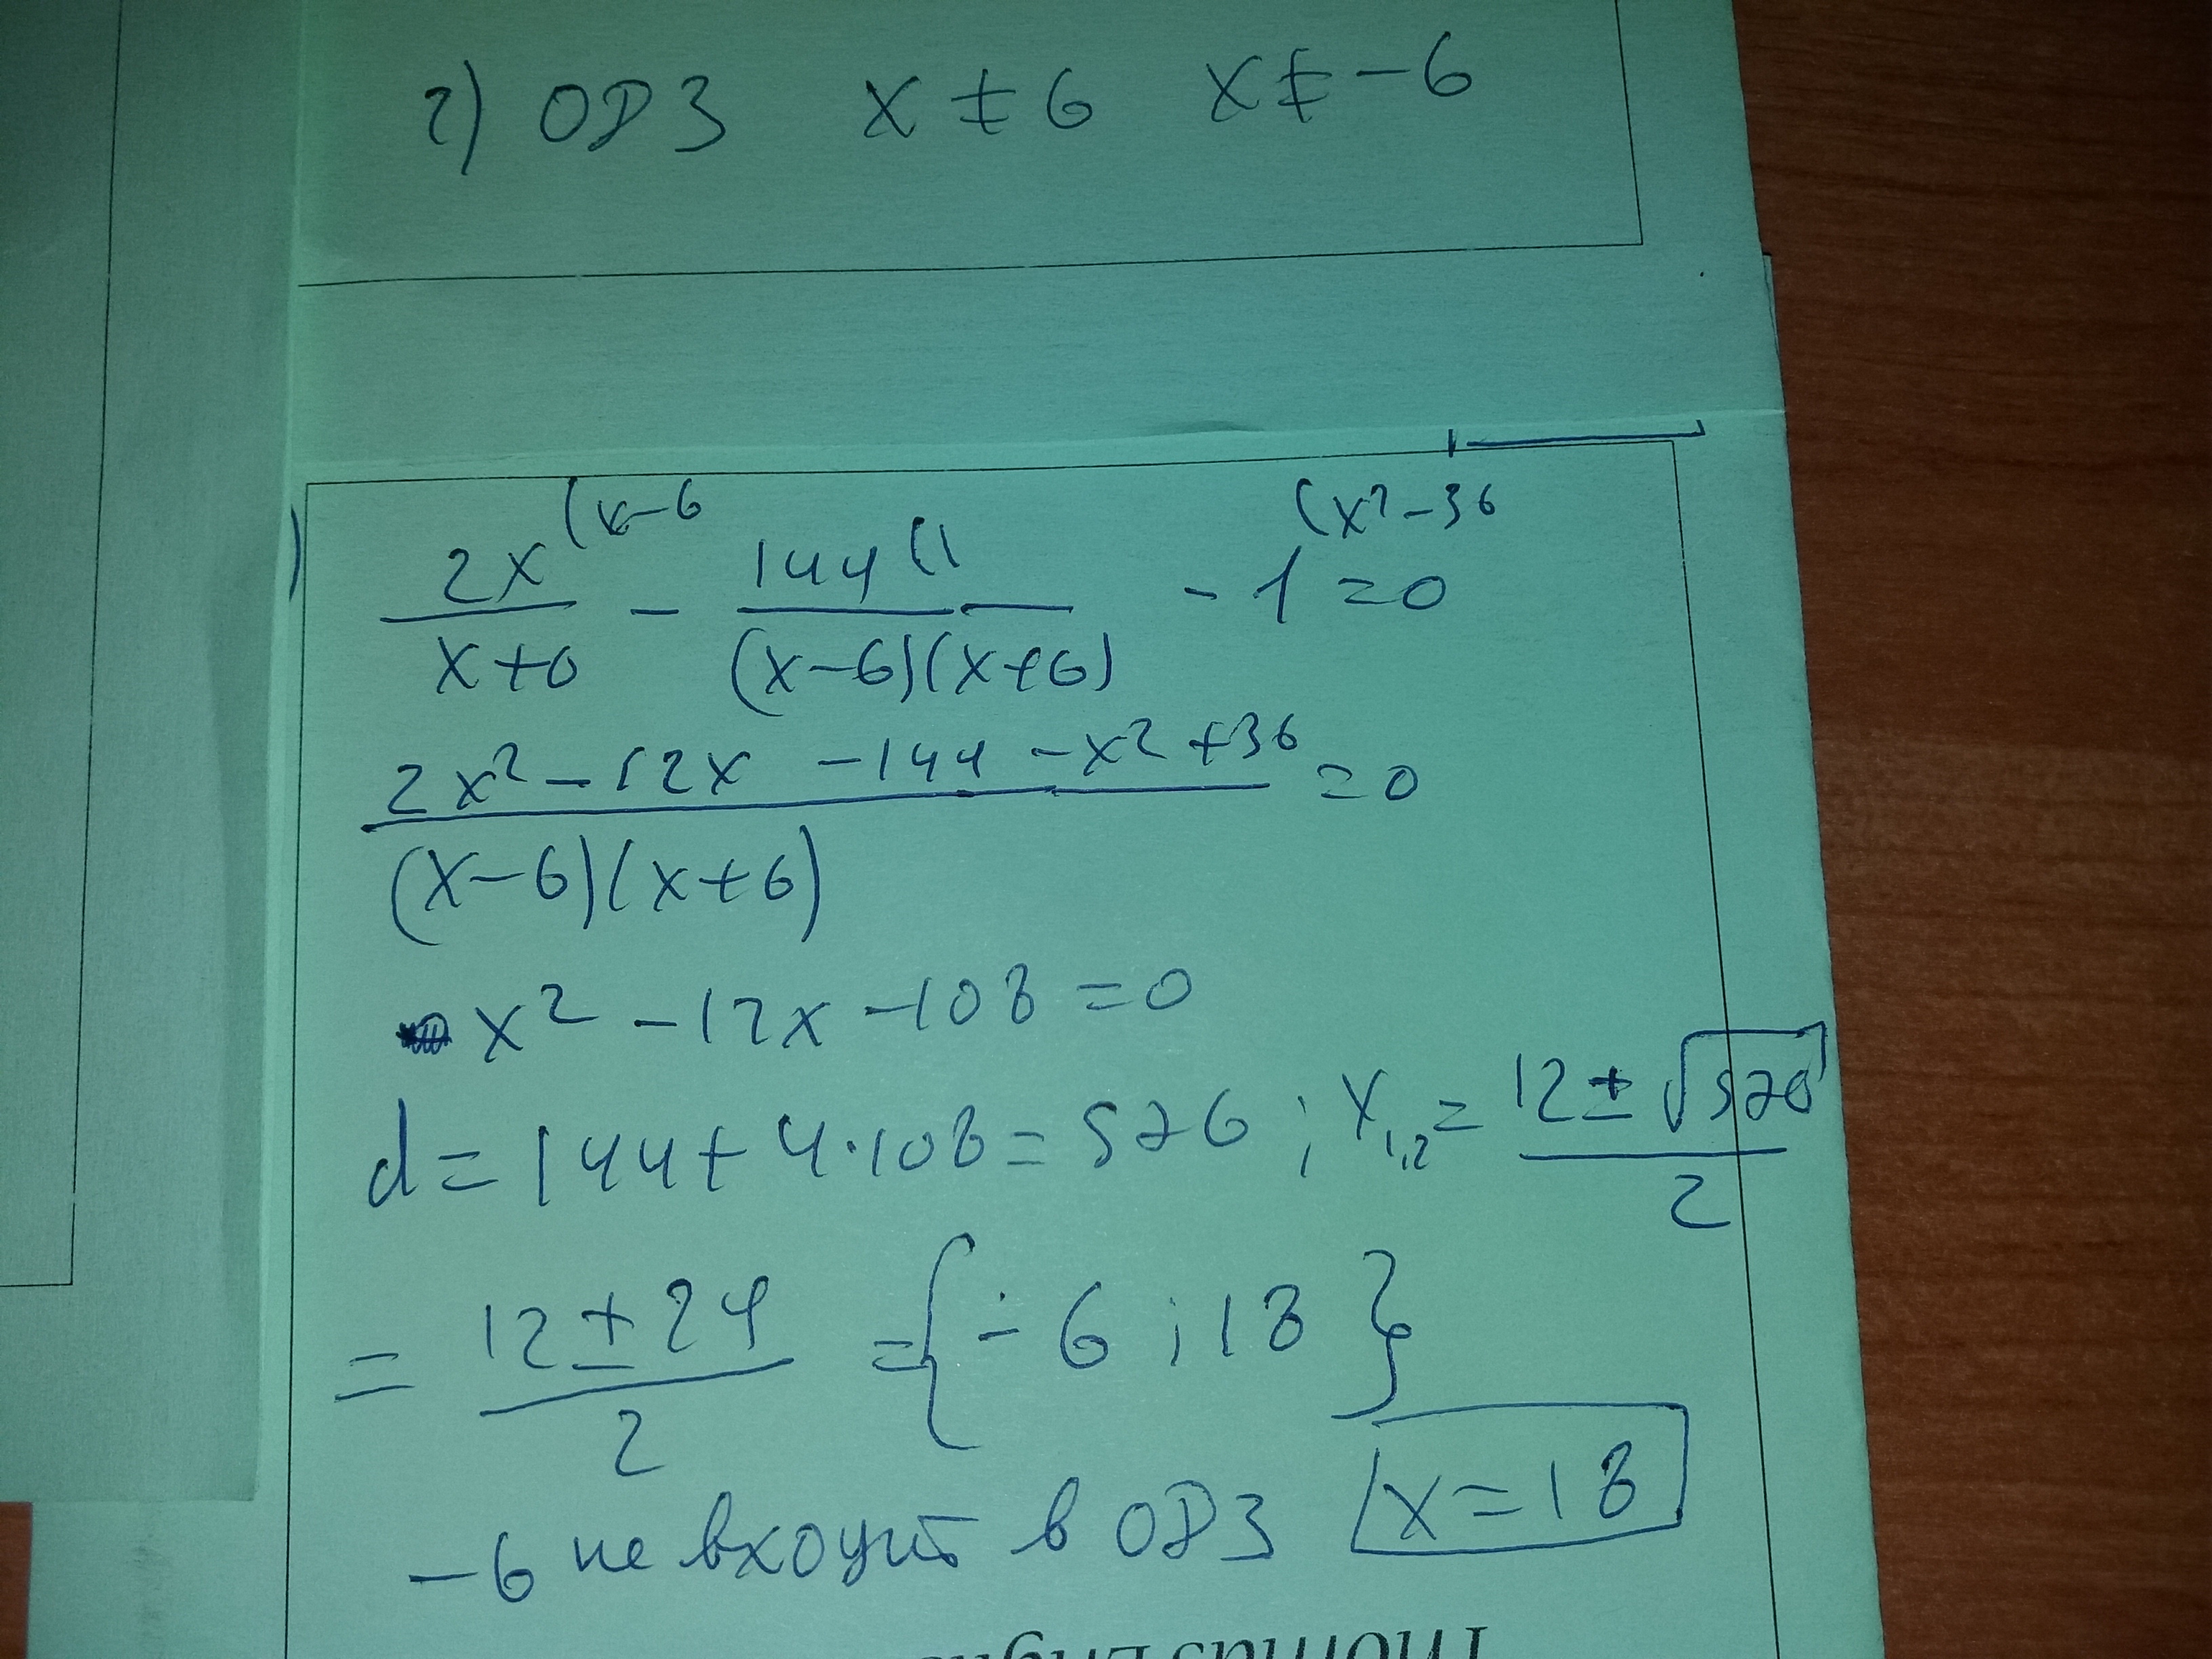 2) ОДЗ x ≠ 6 x ≠ -6
(x-6 (1 (x²-36
2x/(x+6) - 144/((x-6)(x+6)) - 1 = 0
(2x² - 12x - 144 - x² + 36)/((x-6)(x+6)) = 0
x² - 12x - 108 = 0
d = 144 + 4·108 = 576 ; x₁,₂ = (12 ± √576)/2
= (12 ± 24)/2 = {-6 ; 18}
-6 не входит в ОДЗ x = 18
Thomas